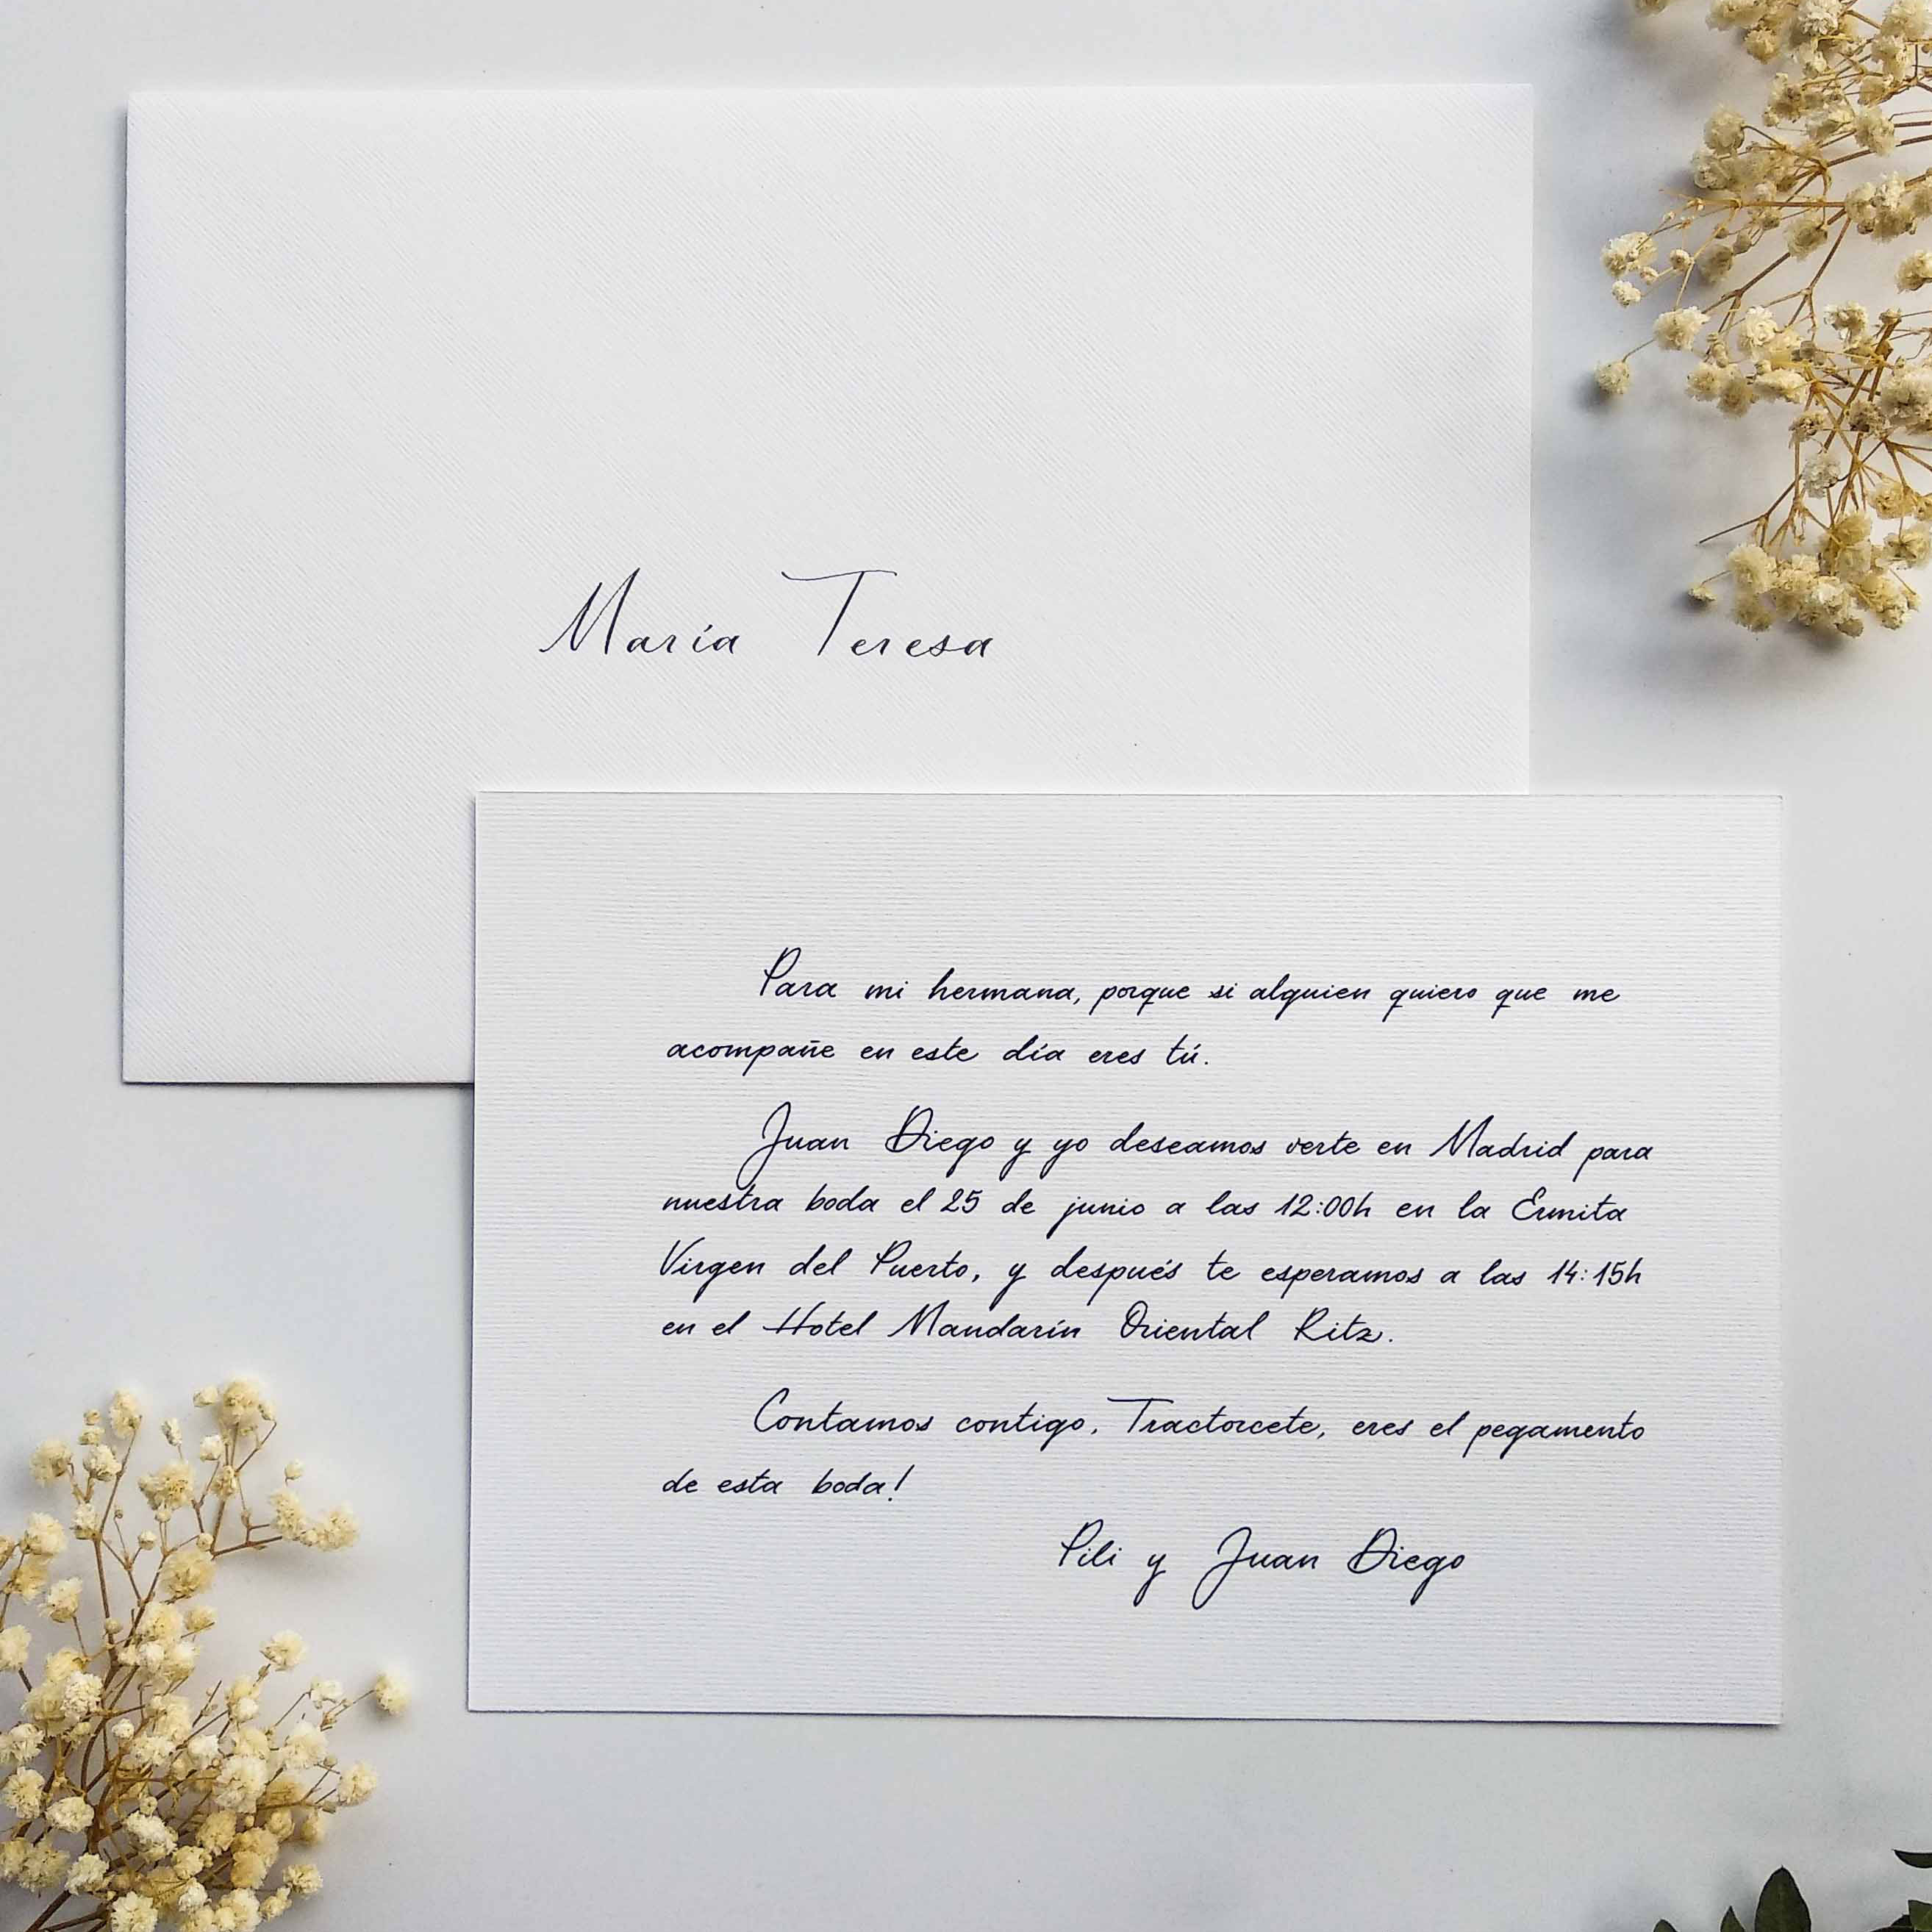 María Teresa
Para mi hermana, porque si alguien quiero que me
acompañe en este día eres tú.
Juan Diego y yo deseamos verte en Madrid para
nuestra boda el 25 de junio a las 12:00h en la Ermita
Virgen del Puerto, y después te esperamos a las 14:15h
en el Hotel Mandarín Oriental Ritz.
Contamos contigo, Tractorcete, eres el pegamento
de esta boda!
Pili y Juan Diego